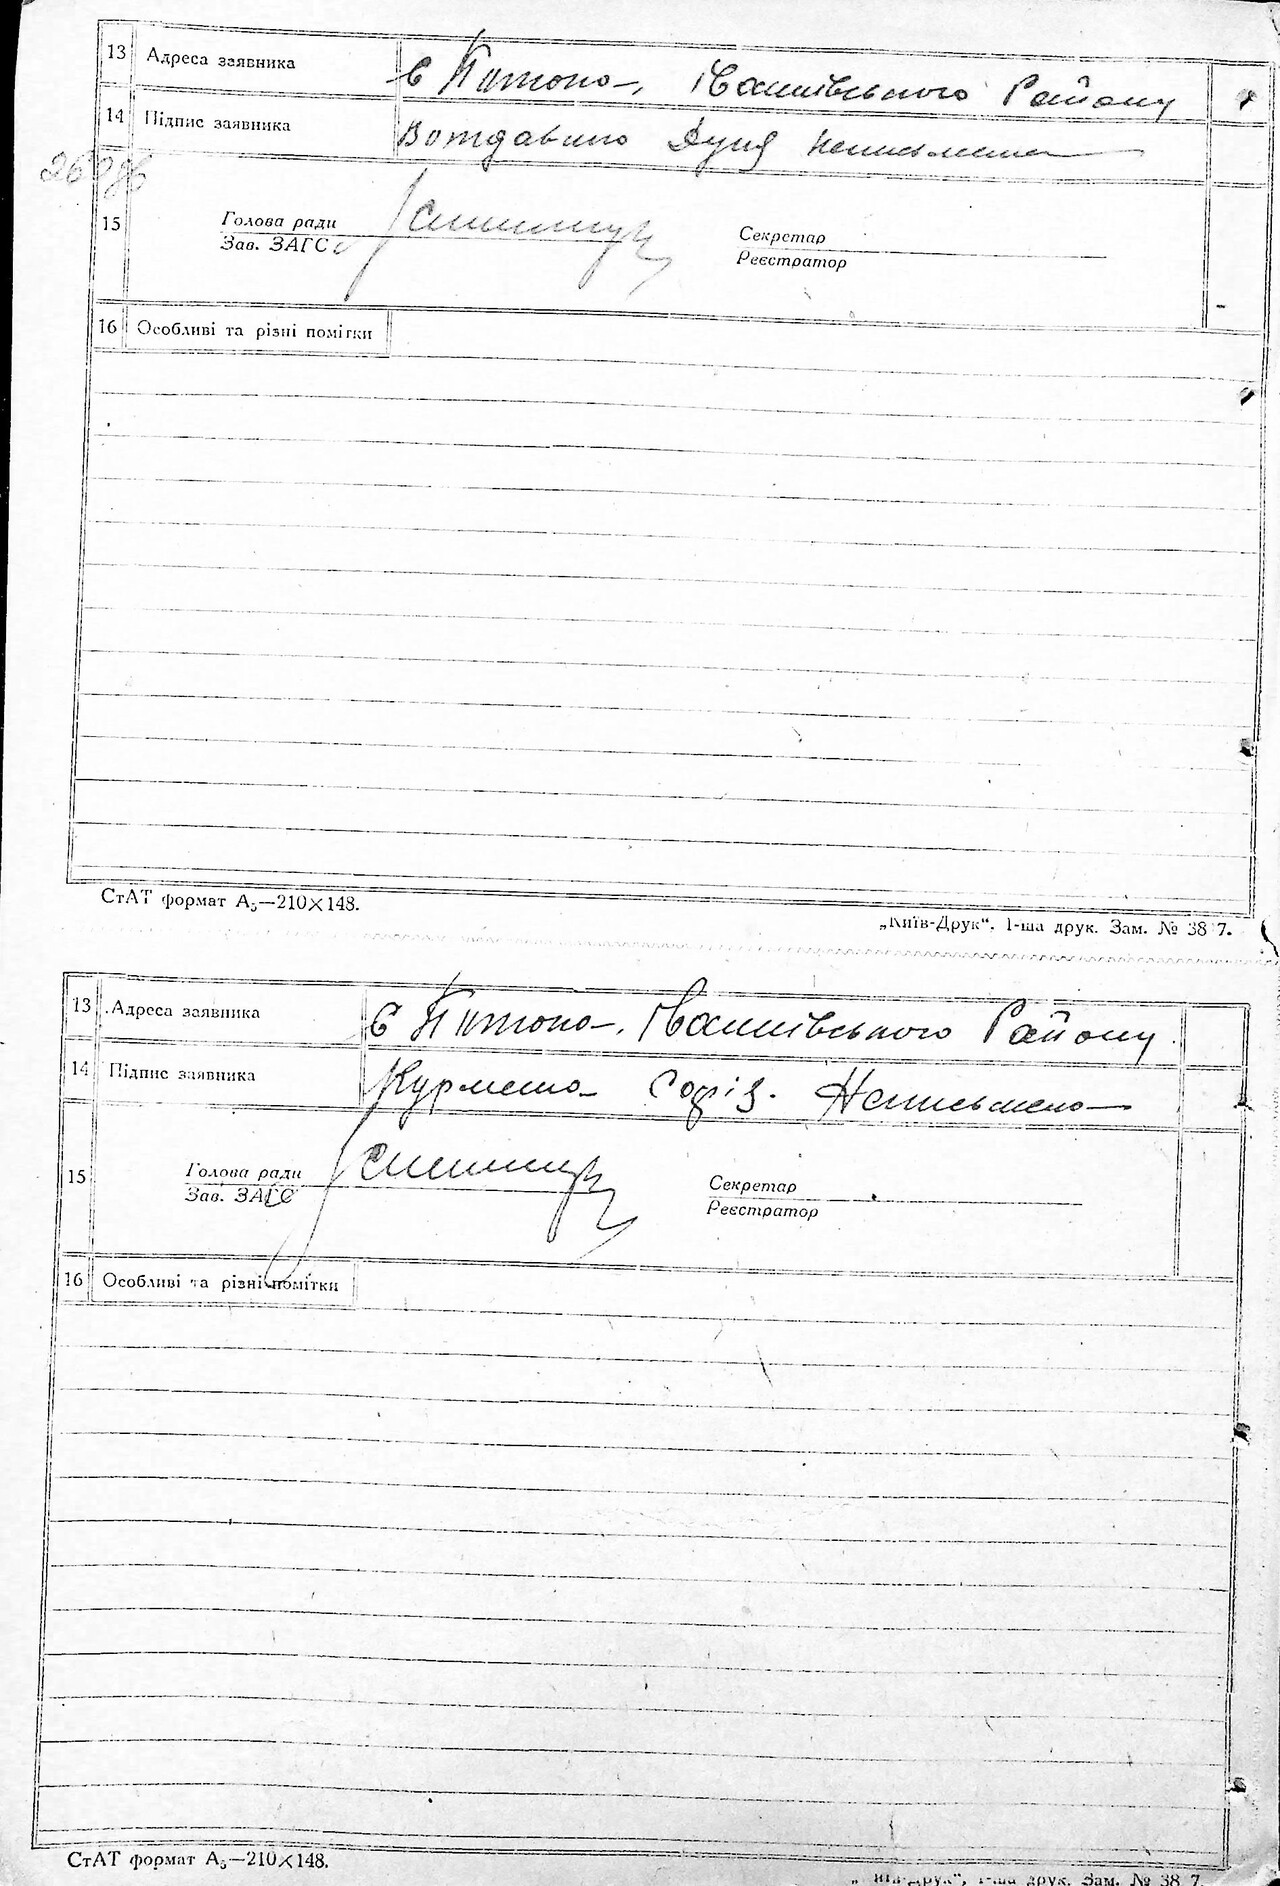 13 Адреса заявника с Питоно-, Іваньківського Району
14 Підпис заявника Дуня неписьмена
15 Голова ради Секретар
Зав. ЗАГС Реєстратор
16 Особливі та різні помітки
СтАТ формат А₅—210×148.
„Київ-Друк“. 1-ша друк. Зам. № 38 7.
13 Адреса заявника с Питоно-. Іваньківського Району
14 Підпис заявника Софія. Неписьмена
15 Голова ради Секретар
Зав. ЗАГС Реєстратор
16 Особливі та різні помітки
СтАТ формат А₅—210×148.
1-ша друк. Зам. № 38 7.